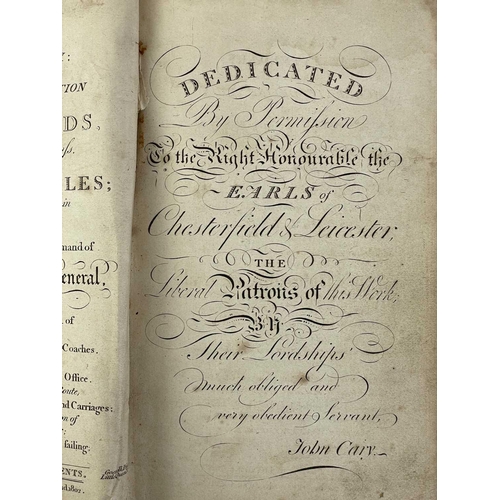 Y:
TION
DS,
oss.
LES;
in
mand of
eneral,
of
Coaches.
Office.
Route,
nd Carriages:
on of
sailing
ENTS.
DEDICATED
By Permiſsion
To the Right Honourable the
EARLS of
Chesterfield & Leicester,
THE
Liberal Patrons of this Work,
By
Their Lordships'
much obliged and
very obedient Servant,
John Cary.